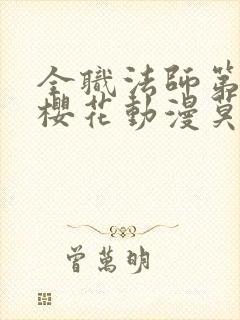 全職法師第
櫻花動漫莫
曾萬明